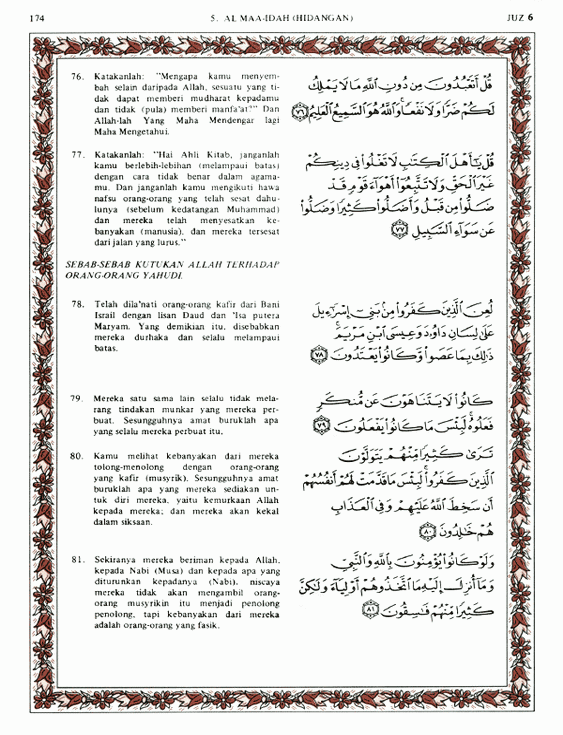 174
5. AL MAA-IDAH (HIDANGAN)
JUZ 6
76. Katakanlah: "Mengapa kamu menyem-
bah selain daripada Allah, sesuatu yang ti-
dak dapat memberi mudharat kepadamu
dan tidak (pula) memberi manfa'at?" Dan
Allah-lah Yang Maha Mendengar lagi
Maha Mengetahui.
قُلْ أَتَعْبُدُونَ مِن دُونِ ٱللَّهِ مَا لَا يَمْلِكُ
لَكُمْ ضَرًّا وَلَا نَفْعًا ۚ وَٱللَّهُ هُوَ ٱلسَّمِيعُ ٱلْعَلِيمُ ﴿٧٦﴾
77. Katakanlah: "Hai Ahli Kitab, janganlah
kamu berlebih-lebihan (melampaui batas)
dengan cara tidak benar dalam agama-
mu. Dan janganlah kamu mengikuti hawa
nafsu orang-orang yang telah sesat dahu-
lunya (sebelum kedatangan Muhammad)
dan mereka telah menyesatkan ke-
banyakan (manusia), dan mereka tersesat
dari jalan yang lurus."
قُلْ يَـٰٓأَهْلَ ٱلْكِتَـٰبِ لَا تَغْلُوا۟ فِى دِينِكُمْ
غَيْرَ ٱلْحَقِّ وَلَا تَتَّبِعُوٓا۟ أَهْوَآءَ قَوْمٍ قَدْ
ضَلُّوا۟ مِن قَبْلُ وَأَضَلُّوا۟ كَثِيرًا وَضَلُّوا۟
عَن سَوَآءِ ٱلسَّبِيلِ ﴿٧٧﴾
SEBAB-SEBAB KUTUKAN ALLAH TERHADAP
ORANG-ORANG YAHUDI.
78. Telah dila'nati orang-orang kafir dari Bani
Israil dengan lisan Daud dan 'Isa putera
Maryam. Yang demikian itu, disebabkan
mereka durhaka dan selalu melampaui
batas.
لُعِنَ ٱلَّذِينَ كَفَرُوا۟ مِنۢ بَنِىٓ إِسْرَٰٓءِيلَ
عَلَىٰ لِسَانِ دَاوُۥدَ وَعِيسَى ٱبْنِ مَرْيَمَ ۚ
ذَٰلِكَ بِمَا عَصَوا۟ وَّكَانُوا۟ يَعْتَدُونَ ﴿٧٨﴾
79. Mereka satu sama lain selalu tidak mela-
rang tindakan munkar yang mereka per-
buat. Sesungguhnya amat buruklah apa
yang selalu mereka perbuat itu.
كَانُوا۟ لَا يَتَنَاهَوْنَ عَن مُّنكَرٍ
فَعَلُوهُ ۚ لَبِئْسَ مَا كَانُوا۟ يَفْعَلُونَ ﴿٧٩﴾
80. Kamu melihat kebanyakan dari mereka
tolong-menolong dengan orang-orang
yang kafir (musyrik). Sesungguhnya amat
buruklah apa yang mereka sediakan un-
tuk diri mereka, yaitu kemurkaan Allah
kepada mereka; dan mereka akan kekal
dalam siksaan.
تَرَىٰ كَثِيرًا مِّنْهُمْ يَتَوَلَّوْنَ
ٱلَّذِينَ كَفَرُوا۟ ۚ لَبِئْسَ مَا قَدَّمَتْ لَهُمْ أَنفُسُهُمْ
أَن سَخِطَ ٱللَّهُ عَلَيْهِمْ وَفِى ٱلْعَذَابِ
هُمْ خَـٰلِدُونَ ﴿٨٠﴾
81. Sekiranya mereka beriman kepada Allah,
kepada Nabi (Musa) dan kepada apa yang
diturunkan kepadanya (Nabi), niscaya
mereka tidak akan mengambil orang-
orang musyrikin itu menjadi penolong
penolong, tapi kebanyakan dari mereka
adalah orang-orang yang fasik.
وَلَوْ كَانُوا۟ يُؤْمِنُونَ بِٱللَّهِ وَٱلنَّبِىِّ
وَمَآ أُنزِلَ إِلَيْهِ مَا ٱتَّخَذُوهُمْ أَوْلِيَآءَ وَلَـٰكِنَّ
كَثِيرًا مِّنْهُمْ فَـٰسِقُونَ ﴿٨١﴾